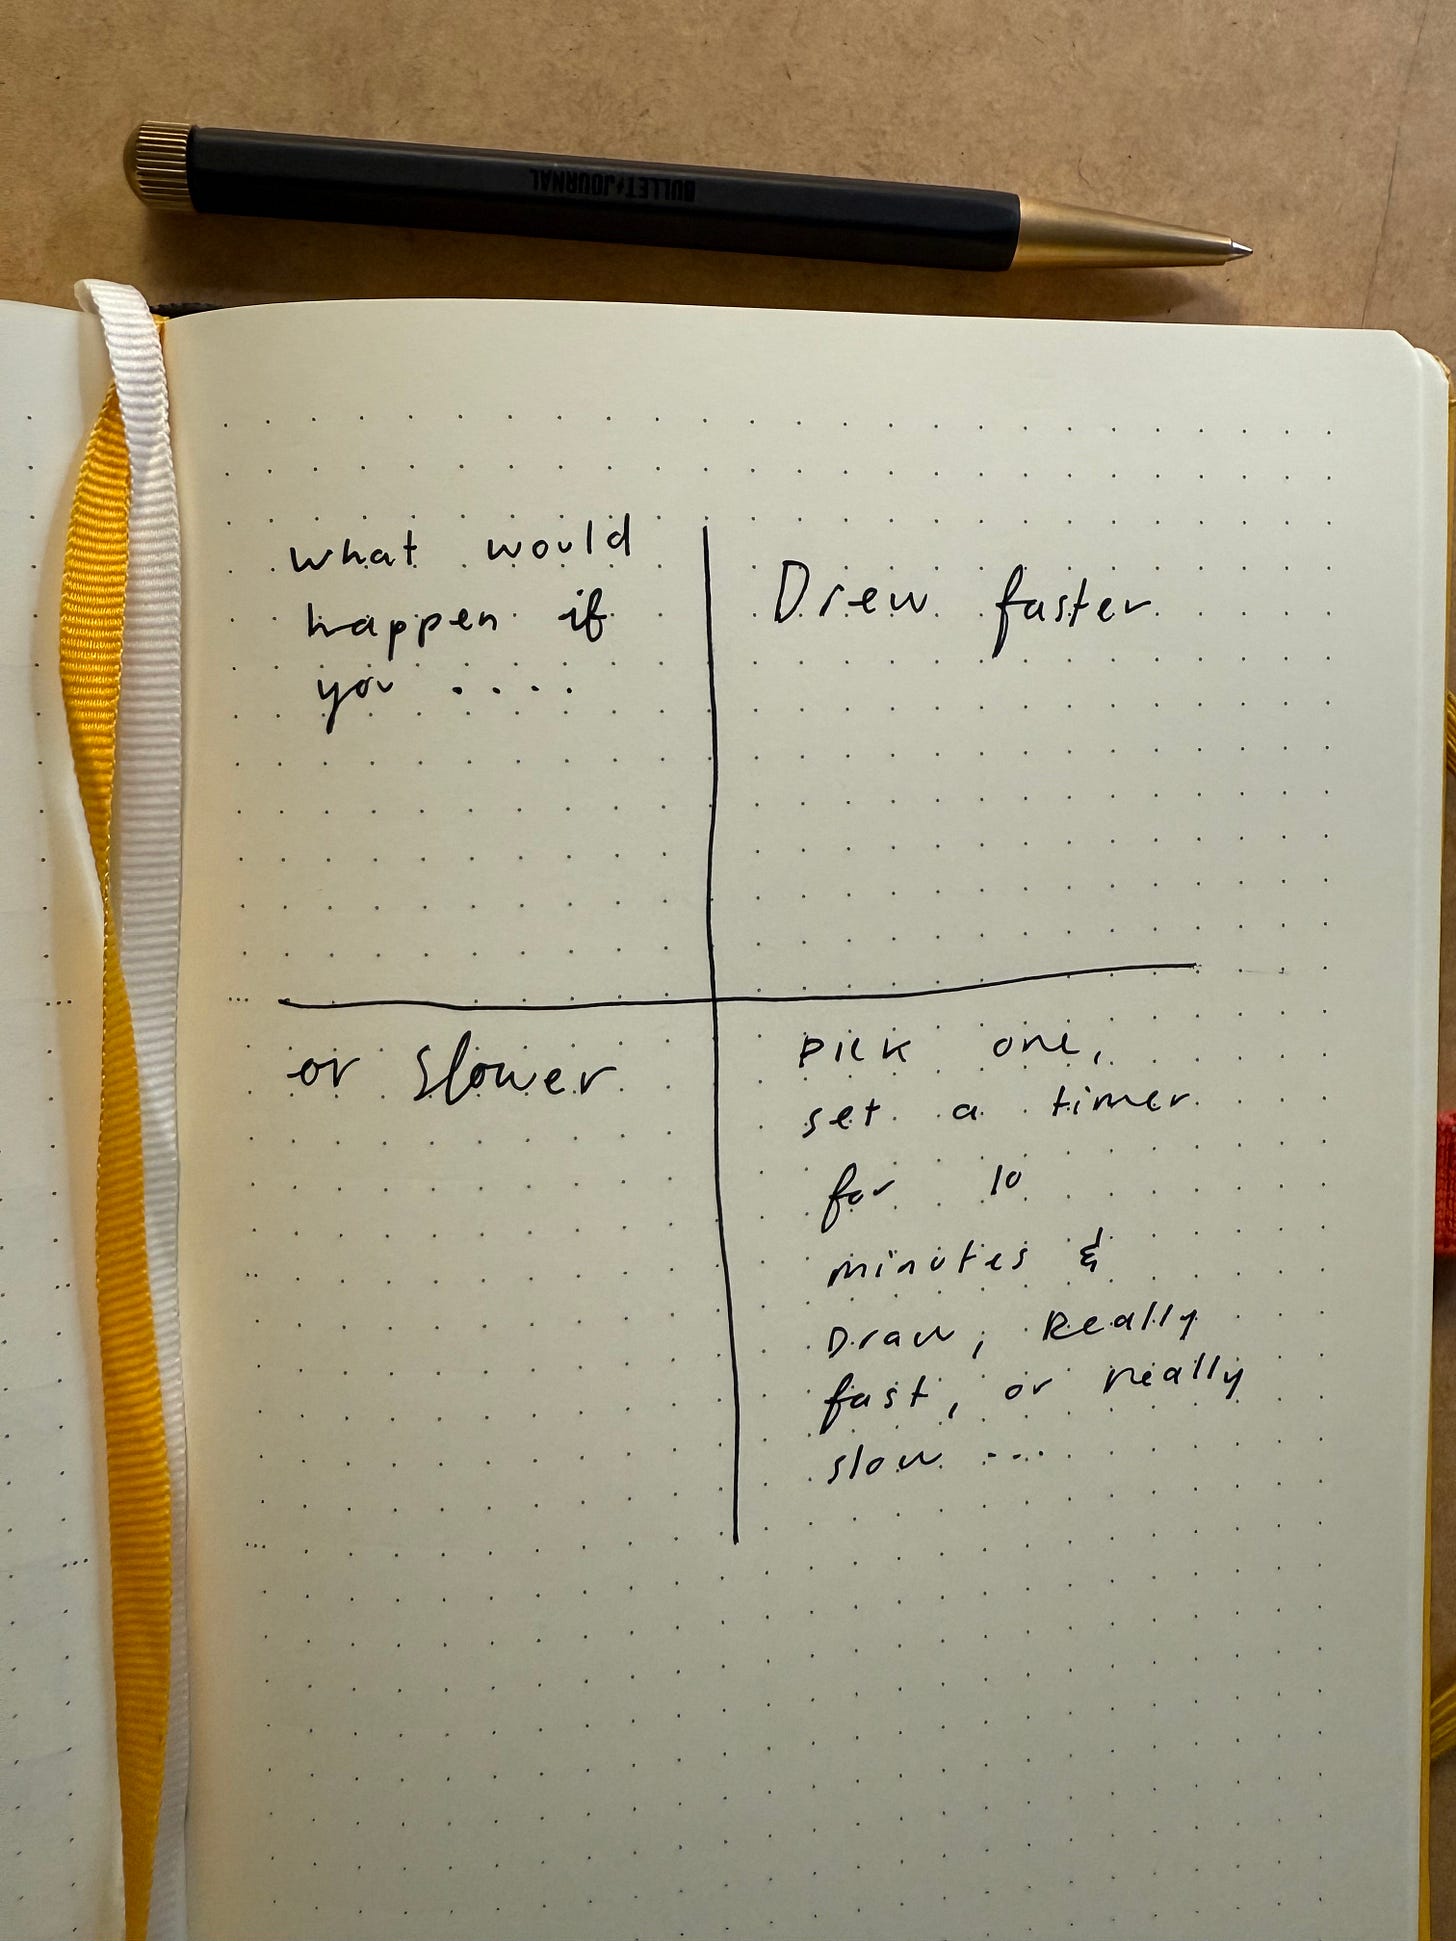 BULLET JOURNAL
what would
happen if
you ....
Drew faster
or slower
pick one,
set a timer
for 10
minutes &
Draw, Really
fast, or really
slow ....